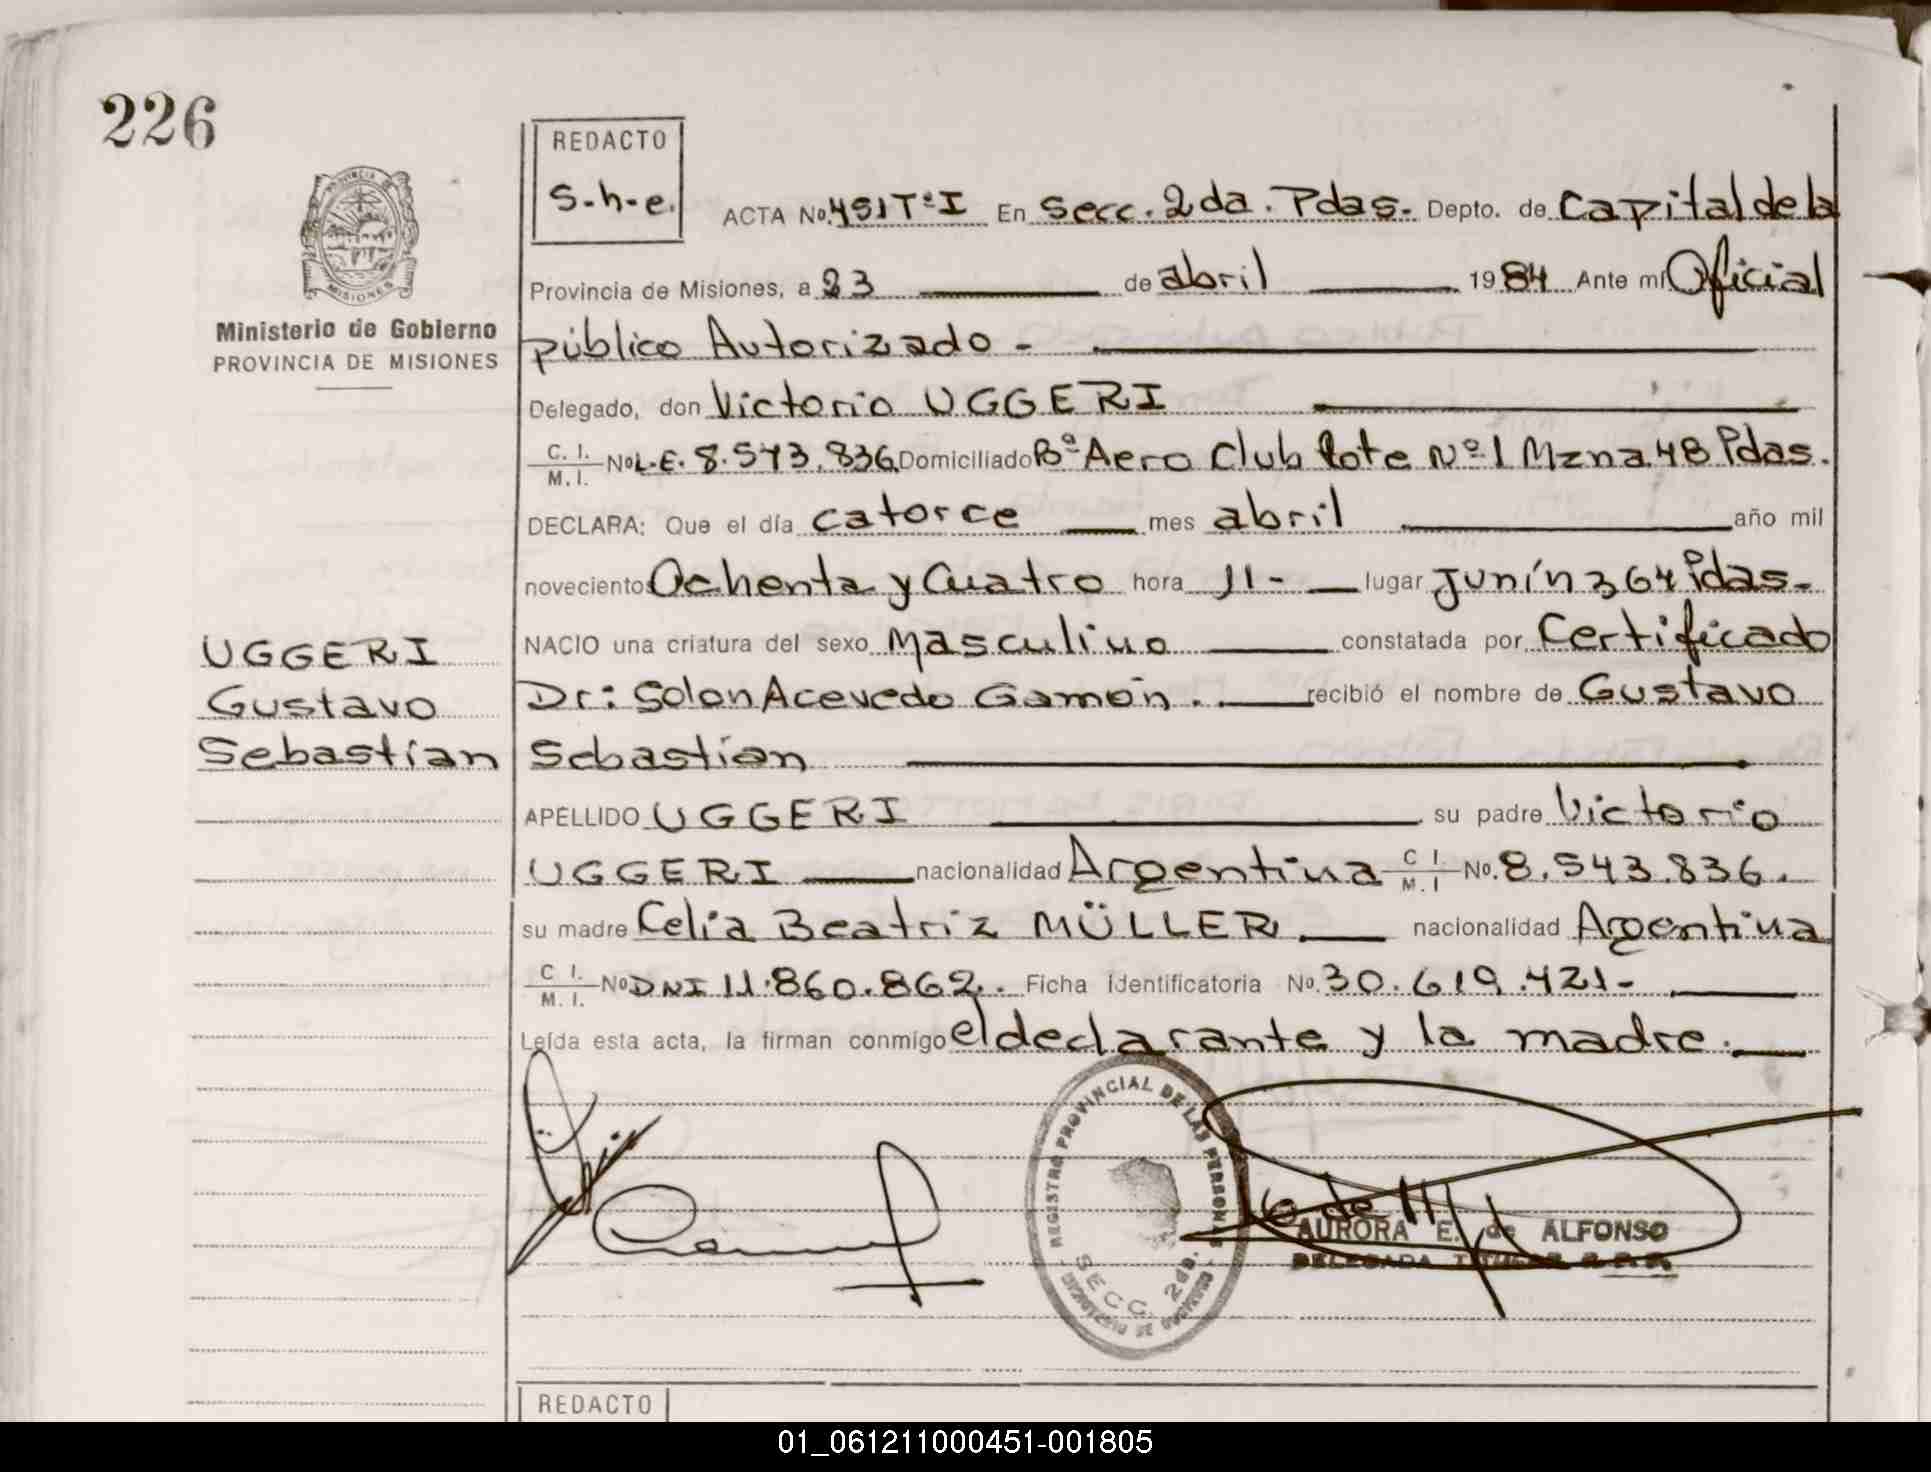 226
REDACTO
S-h-e.
ACTA No. 451 Tº I En Secc. 2da. Pdas. Depto. de Capital de la
Provincia de Misiones, a 23 de abril 1984 Ante mí Oficial
público Autorizado -
MISIONES
Ministerio de Gobierno
PROVINCIA DE MISIONES
Delegado, don Victorio UGGERI
C. I. / M. I. No L.E. 8.543.836 Domiciliado Bº Aero Club lote Nº 1 Mzna 48 Pdas.
DECLARA: Que el día catorce mes abril año mil
novecientos Ochenta y Cuatro hora 11- lugar Junín 364 Pdas-
NACIO una criatura del sexo Masculino constatada por Certificado
Dr: Solon Acevedo Gamón. recibió el nombre de Gustavo
Sebastían
UGGERI
Gustavo
Sebastían
APELLIDO UGGERI su padre Victorio
UGGERI nacionalidad Argentina C I. / M. I No. 8.543.836.
su madre Celia Beatriz MÜLLER. nacionalidad Argentina
C I. / M. I. No DNI 11.860.862. Ficha identificatoria No. 30.619.421-
Leída esta acta, la firman conmigo el declarante y la madre.
REGISTRO PROVINCIAL DE LAS PERSONAS
SECC. 2da.
AURORA E. de ALFONSO
DELEGADA TITULAR
REDACTO
01_061211000451-001805